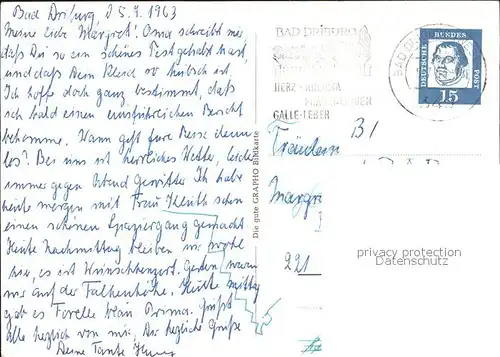 Bad Driburg, d 5.9.1963
Meine liebe Margret! Oma schreibt mir,
daß Du so ein schönes Fest gehabt hast,
und daß Dein Kleid so hübsch ist.
Ich hoffe doch ganz bestimmt, daß
ich bald einen ausführlichen Bericht
bekomme. Wann geht Eure Reise denn
los? Bei uns ist herrliches Wetter, leider
immer gegen Abend Gewitter. Ich habe
heute morgen mit Frau schon
einen schönen Spaziergang gemacht.
Heute Nachmittag bleiben wir wohl
hier, es ist Wunschkonzert. Gestern waren
wir auf der Falkenhöhe. Heute mittag
gab es Forelle blau. Prima. Grüßt
alle herzlich von mir. Dir herzliche Grüße
Deine Tante
Die gute GRAPHO Bildkarte
BAD DRIBURG
HERZ
GALLE-LEBER
BAD
DEUTSCHE BUNDESPOST
15
Fräulein
Margre
221
privacy protection
Datenschutz